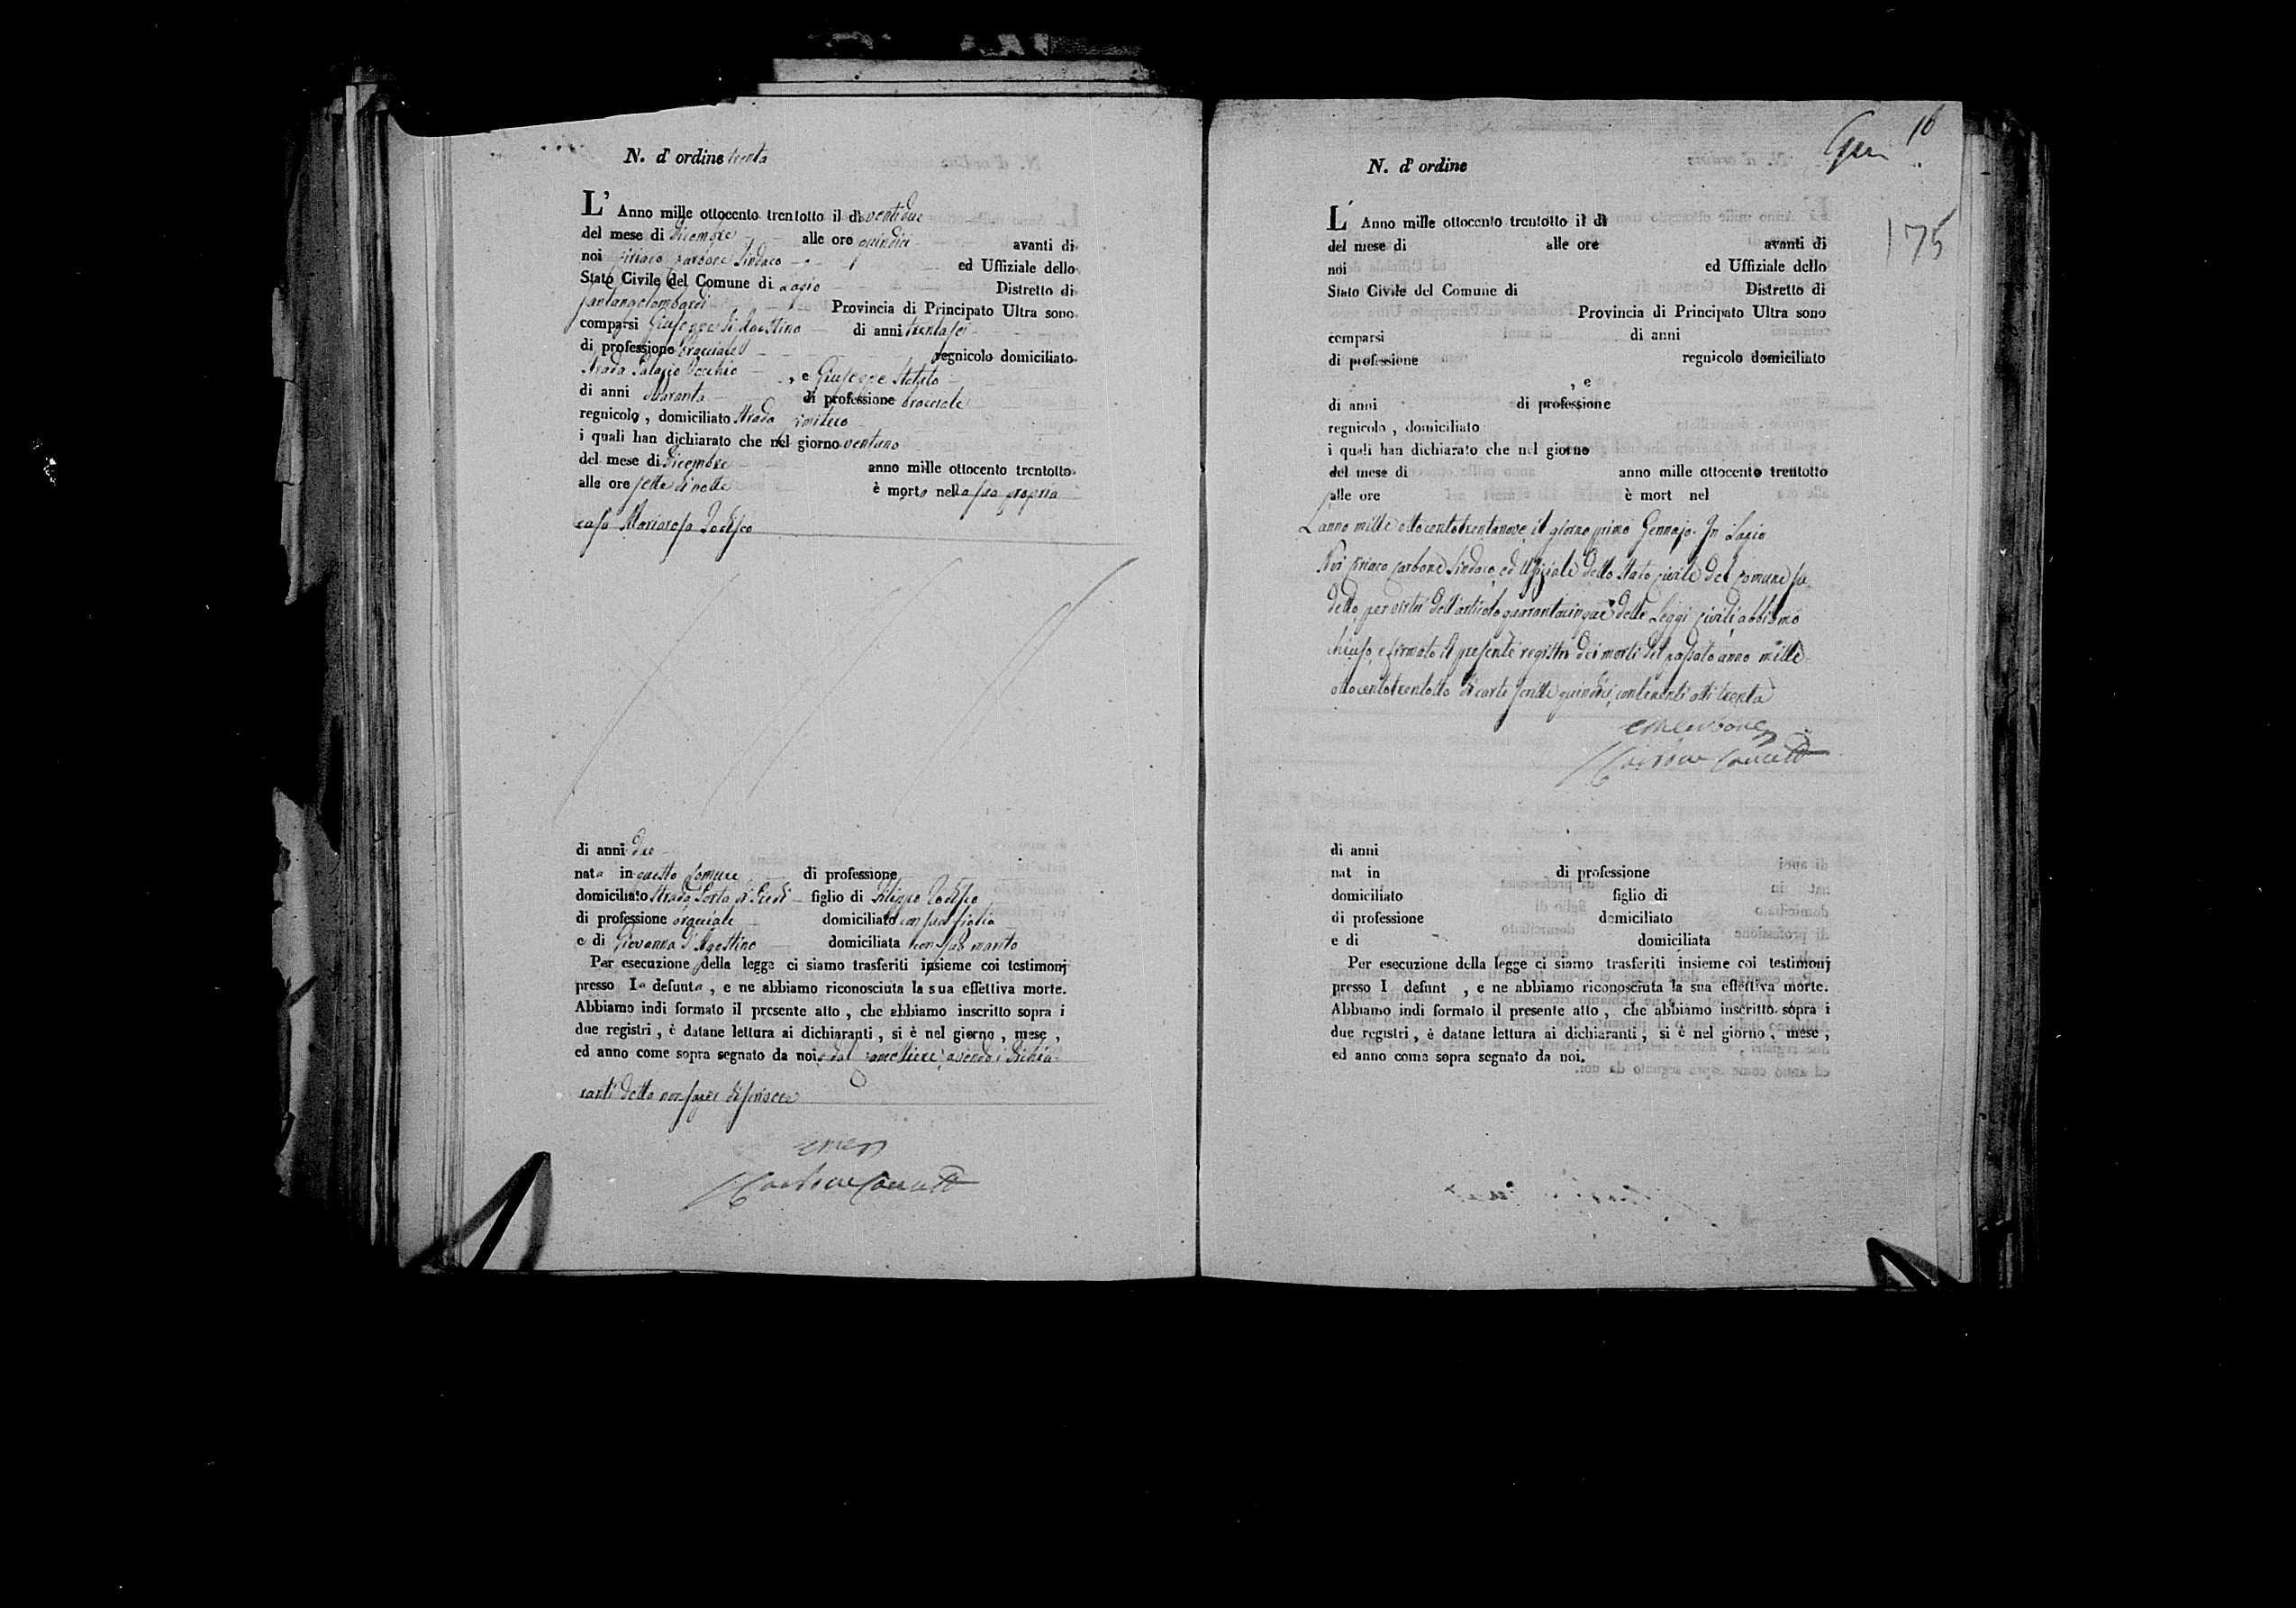 N. d' ordine trenta
L' Anno mille ottocento trentotto il dì ventidue
del mese di Dicembre alle ore quindici avanti di
noi Ciriaco Carbone Sindaco ed Uffiziale dello
Stato Civile del Comune di Lapio Distretto di
Santangelolombardi Provincia di Principato Ultra sono
comparsi Giuseppe d'Agostino di anni trentasei
di professione bracciale regnicolo domiciliato
Strada Palazio Vecchio , e Giuseppe
di anni quaranta di professione bracciale
regnicolo , domiciliato Strada
i quali han dichiarato che nel giorno ventuno
del mese di Dicembre anno mille ottocento trentotto
alle ore sette di notte è morta nella sua propria
casa Mariarosa Todesco
di anni due
nata in questo Comune di professione
domiciliato Strada Porta di Piedi figlio di Filippo Todesco
di professione bracciale domiciliato con sua figlia
e di Giovanna d'Agostino domiciliata con suo marito
Per esecuzione della legge ci siamo trasferiti insieme coi testimonj
presso la defunta , e ne abbiamo riconosciuta la sua effettiva morte.
Abbiamo indi formato il presente atto , che abbiamo inscritto sopra i
due registri , è datane lettura ai dichiaranti , si è nel giorno , mese ,
ed anno come sopra segnato da noi, e dal Cancelliere avendo i dichia-
ranti detto non saper di scrivere
Carbone
16
175
N. d' ordine
L' Anno mille ottocento trentotto il dì
del mese di alle ore avanti di
noi ed Uffiziale dello
Stato Civile del Comune di Distretto di
Provincia di Principato Ultra sono
comparsi di anni
di professione regnicolo domiciliato
, e
di anni di professione
regnicolo , domiciliato
i quali han dichiarato che nel giorno
del mese di anno mille ottocento trentotto
alle ore è mort nel
L'anno mille ottocentotrentanove il giorno primo Gennajo. In Lapio
Noi Ciriaco Carbone Sindaco, ed Ufficiale dello Stato civile del Comune su-
detto, per virtù dell'articolo quarantacinque delle Leggi civili, abbiamo
chiuso, e firmato il presente registro dei morti del passato anno mille
ottocentotrentotto di carte scritte quindici, contenenti atti trenta
Carbone
Carbone
di anni
nat in di professione
domiciliato figlio di
di professione domiciliato
e di domiciliata
Per esecuzione della legge ci siamo trasferiti insieme coi testimonj
presso l defunt , e ne abbiamo riconosciuta la sua effettiva morte.
Abbiamo indi formato il presente atto , che abbiamo inscritto sopra i
due registri , è datane lettura ai dichiaranti , si è nel giorno , mese ,
ed anno come sopra segnato da noi.